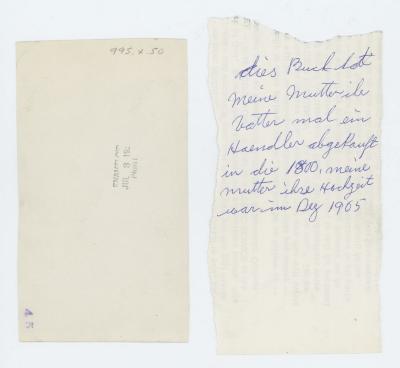 995. x 50
JUL 8 196
45
dies Buch hat
meine Mutter ihr
Vatter mal ein
Haendler abgekauft
in die 1800, meine
mutter ihre Hochzeit
war im Dez 1905